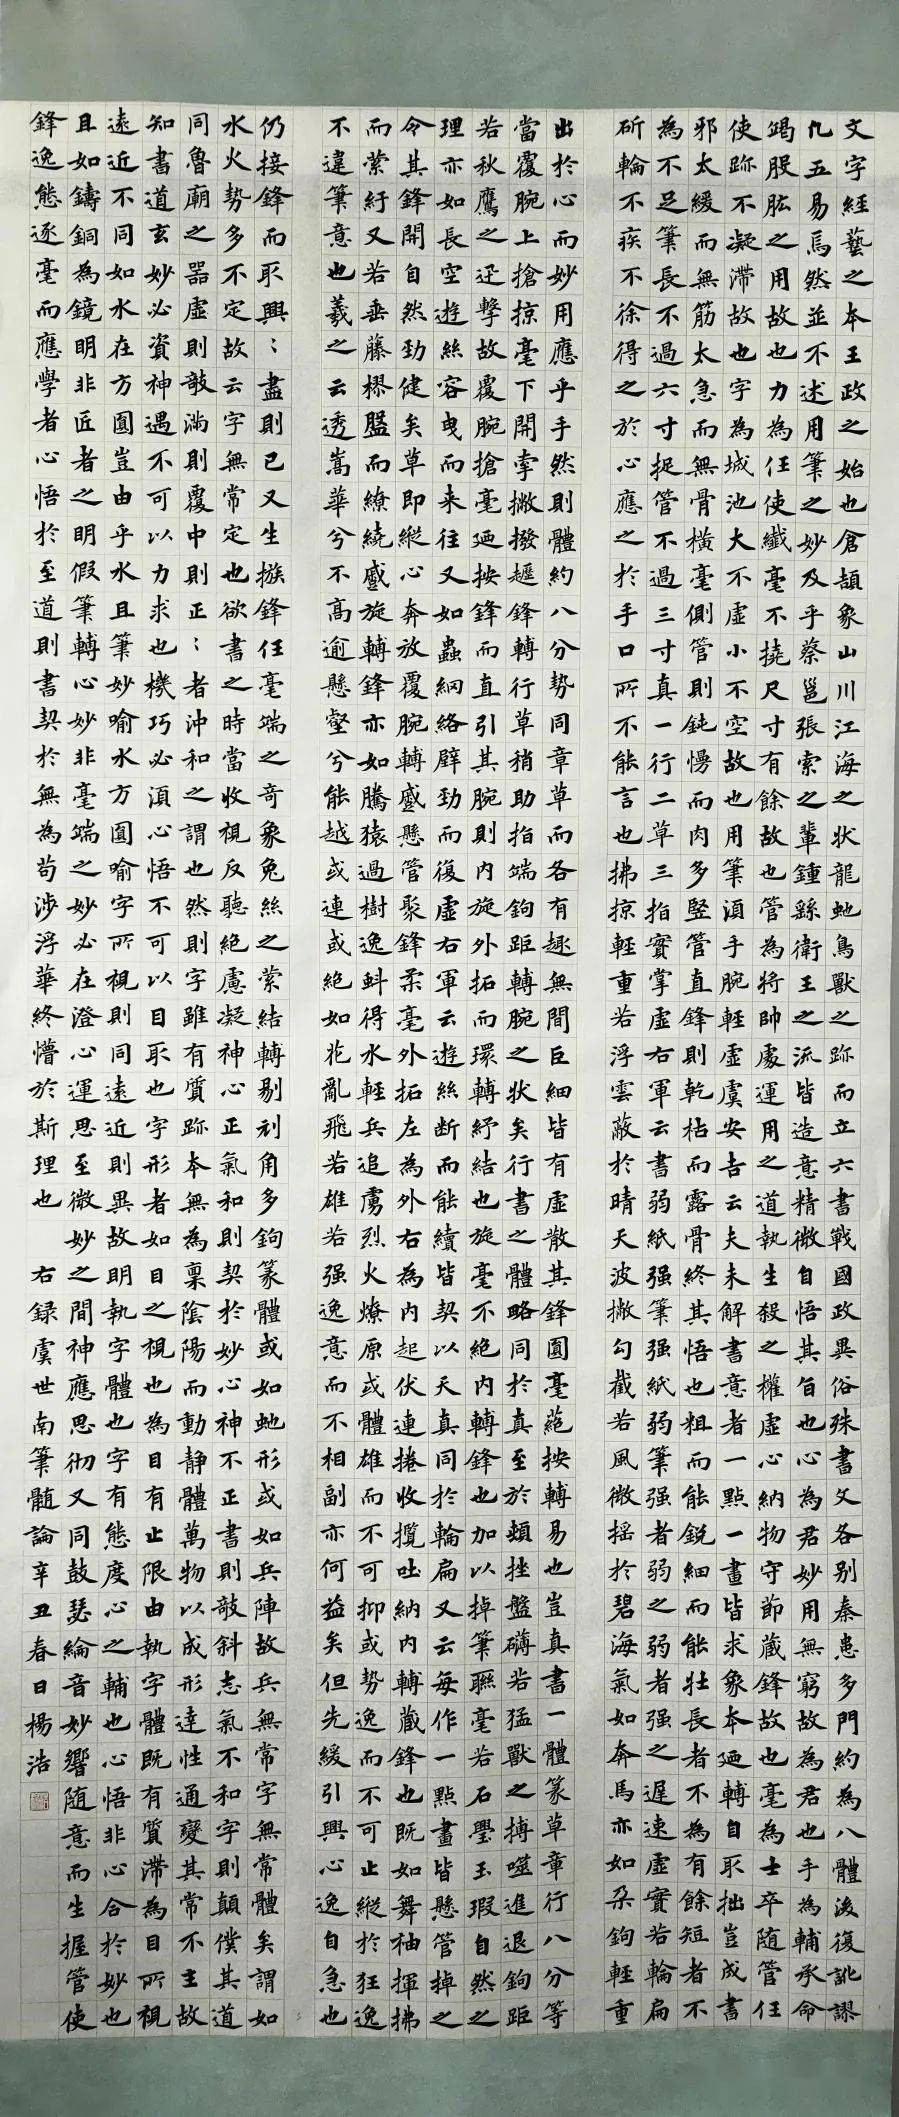 文字經藝之本王政之始也倉頡象山川江海之狀龍虵鳥獸之跡而立六書戰國政異俗殊書文各別秦患多門約為八體後復訛謬
凢五易焉然並不述用筆之妙及乎蔡邕張索之輩鍾繇衛王之流皆造意精微自悟其旨也心為君妙用無窮故為君也手為輔承命
竭股肱之用故也力為任使纖毫不撓尺寸有餘故也管為將帥處運用之道執生殺之權虛心納物守節藏鋒故也毫為士卒随管任
使跡不凝滯故也字為城池大不虛小不空故也用筆湏手腕輕虛虞安吉云夫未解書意者一點一畫皆求象本廼轉自取拙豈成書
邪太緩而無筋太急而無骨橫毫側管則鈍慢而肉多竪管直鋒則乾枯而露骨終其悟也粗而能銳細而能壯長者不為有餘短者不
為不足筆長不過六寸捉管不過三寸真一行二草三指實掌虛右軍云書弱紙强筆强紙弱筆强者弱之弱者强之遲速虛實若輪扁
斫輪不疾不徐得之於心應之於手口所不能言也拂掠輕重若浮雲蔽於晴天波撇勾截若風微搖於碧海氣如奔馬亦如朵鉤輕重
出於心而妙用應乎手然則體約八分勢同章草而各有趣無間巨細皆有虛散其鋒圓毫蕝按轉易也豈真書一體篆草章行八分等
當覆腕上搶掠毫下開牽撇撥趯鋒轉行草稍助指端鉤距轉腕之狀矣行書之體略同於真至於頓挫盤礴若猛獸之搏噬進退鉤距
若秋鷹之迅擊故覆腕搶毫廼按鋒而直引其腕則內旋外拓而環轉紓結也旋毫不絕內轉鋒也加以掉筆聯毫若石璺玉瑕自然之
理亦如長空遊絲容曳而来往又如蟲網絡壁勁而復虛右軍云遊絲断而能續皆契以天真同於輪扁又云每作一點畫皆懸管掉之
令其鋒開自然劲健矣草即縱心奔放覆腕轉蹙懸管聚鋒柔毫外拓左為外右為內起伏連捲收攬吐納內轉藏鋒也既如舞袖揮拂
而縈紆又若垂藤樛盤而繚繞蹙旋轉鋒亦如騰猿過樹逸蚪得水輕兵追虜烈火燎原或體雄而不可抑或勢逸而不可止縱於狂逸
不違筆意也羲之云透嵩華兮不高逾懸壑兮能越或連或絕如花亂飛若雄若强逸意而不相副亦何益矣但先緩引興心逸自急也
仍接鋒而取興︰盡則已又生撥鋒任毫端之奇象兔絲之縈結轉剔刓角多鉤篆體或如虵形或如兵陣故兵無常字無常體矣謂如
水火勢多不定故云字無常定也欲書之時當收視反聽絕慮凝神心正氣和則契於妙心神不正書則敧斜志氣不和字則顛僕其道
同魯廟之器虛則敧滿則覆中則正︰者沖和之謂也然則字雖有質跡本無為稟陰陽而動靜體萬物以成形達性通變其常不主故
知書道玄妙必資神遇不可以力求也機巧必湏心悟不可以目取也字形者如目之視也為目有止限由執字體既有質滯為目所視
遠近不同如水在方圓豈由乎水且筆妙喻水方圓喻字所視則同遠近則異故明執字體也字有態度心之輔也心悟非心合於妙也
且如鑄銅為鏡明非匠者之明假筆轉心妙非毫端之妙必在澄心運思至微妙之間神應思彻又同鼓瑟綸音妙響随意而生握管使
鋒逸態逐毫而應學者心悟於至道則書契於無為苟涉浮華終懵於斯理也 右録虞世南筆髄論辛丑春日楊浩